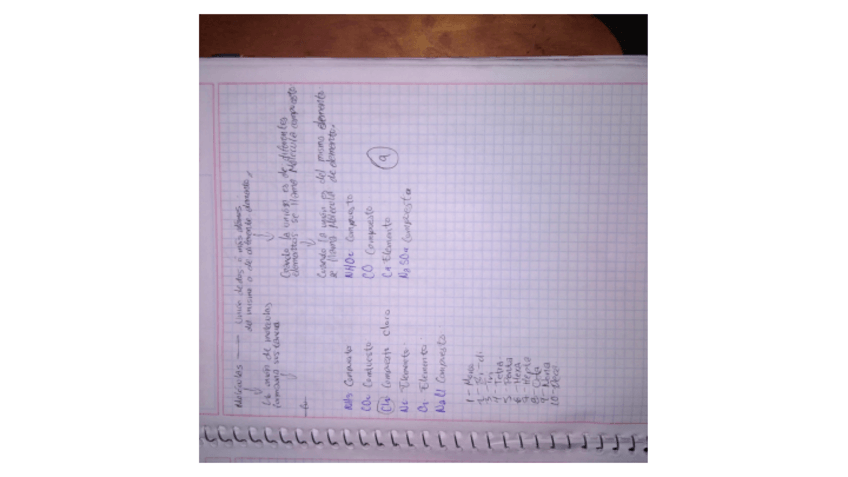 Moléculas — Unión de dos o más átomos
del mismo o de diferente elemento.
La unión de moléculas
forman
Cuando la unión es de diferentes
elementos se llama Molécula compuesto
Cuando la unión es del mismo elemento
se llama Molécula de elemento.
NH3 Compuesto
CO2 Compuesto
Cl2 Compuesto cloro
N2 Elemento
O2 Elemento
NaCl Compuesto
Compuesto
CO Compuesto
Elemento
Compuesto
a
1- Mono
2- Bi-di
3- Tri
4- Tetra
5- Penta
6- Hexa
7- Hepta
8- Octa
9- Nona
10- Deca